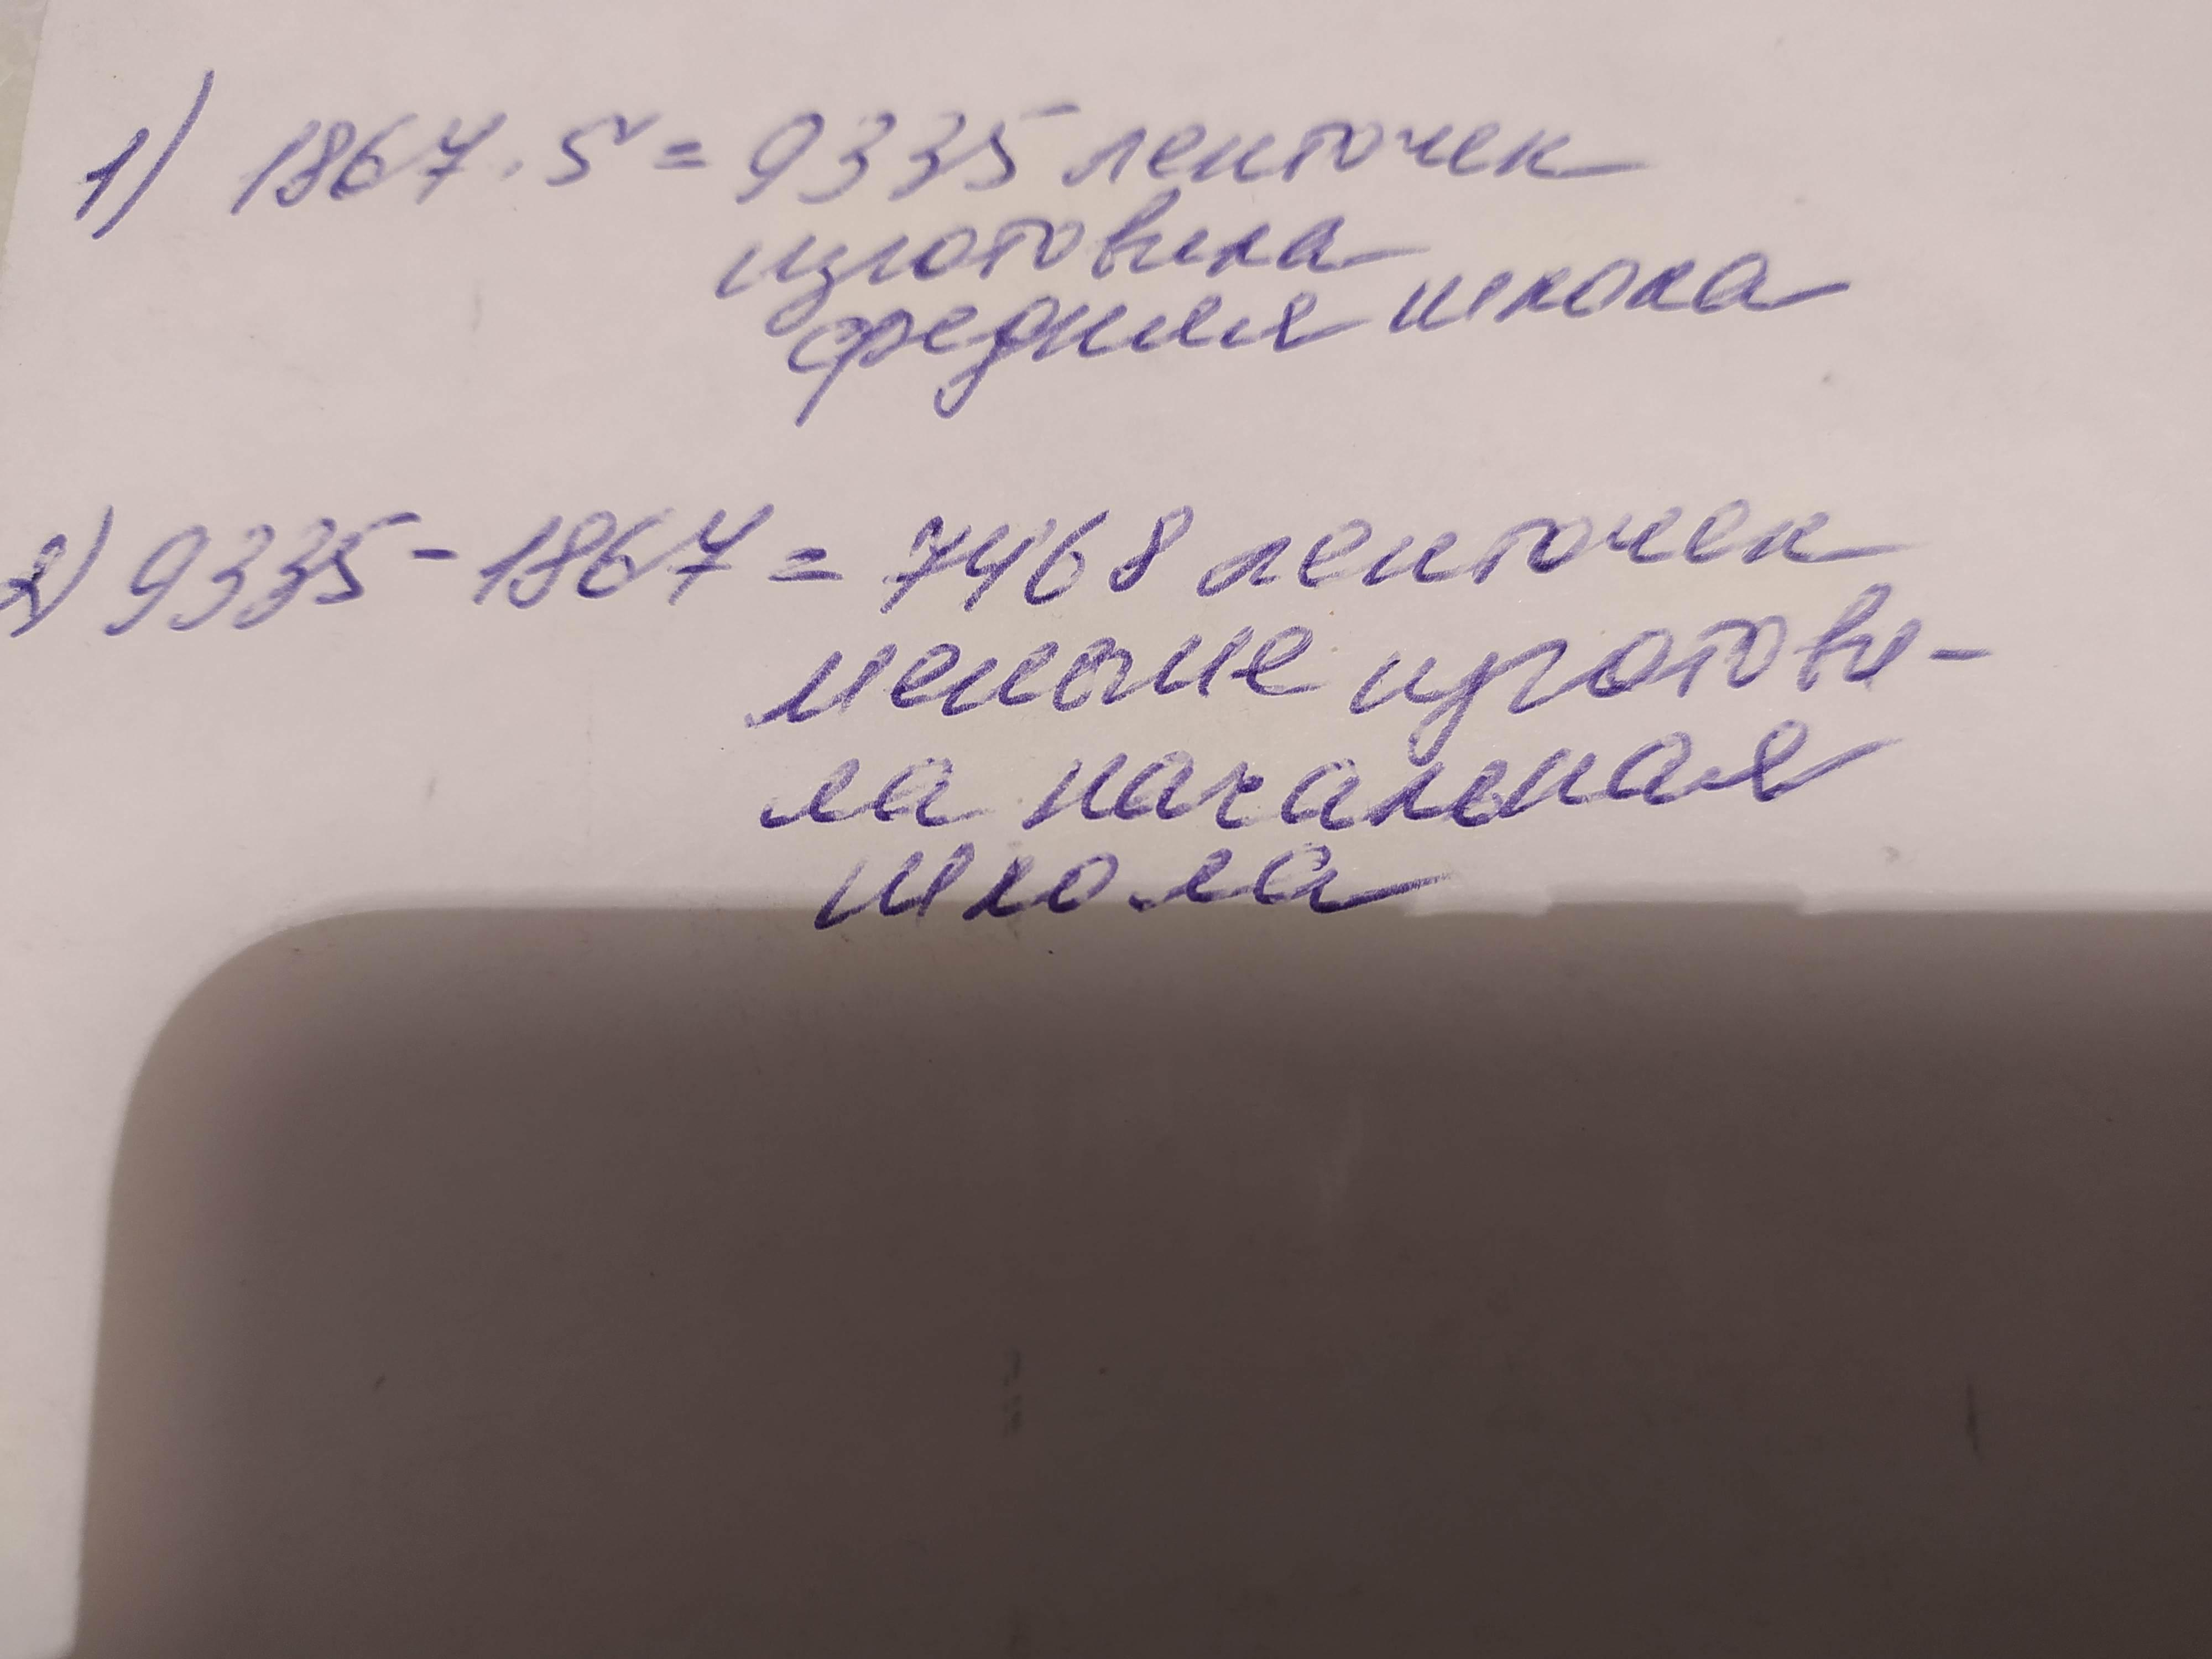 1) 1867 · 5 = 9335 ленточек
изготовила
средняя школа
2) 9335 - 1867 = 7468 ленточек
меньше изготови-
ла начальная
школа